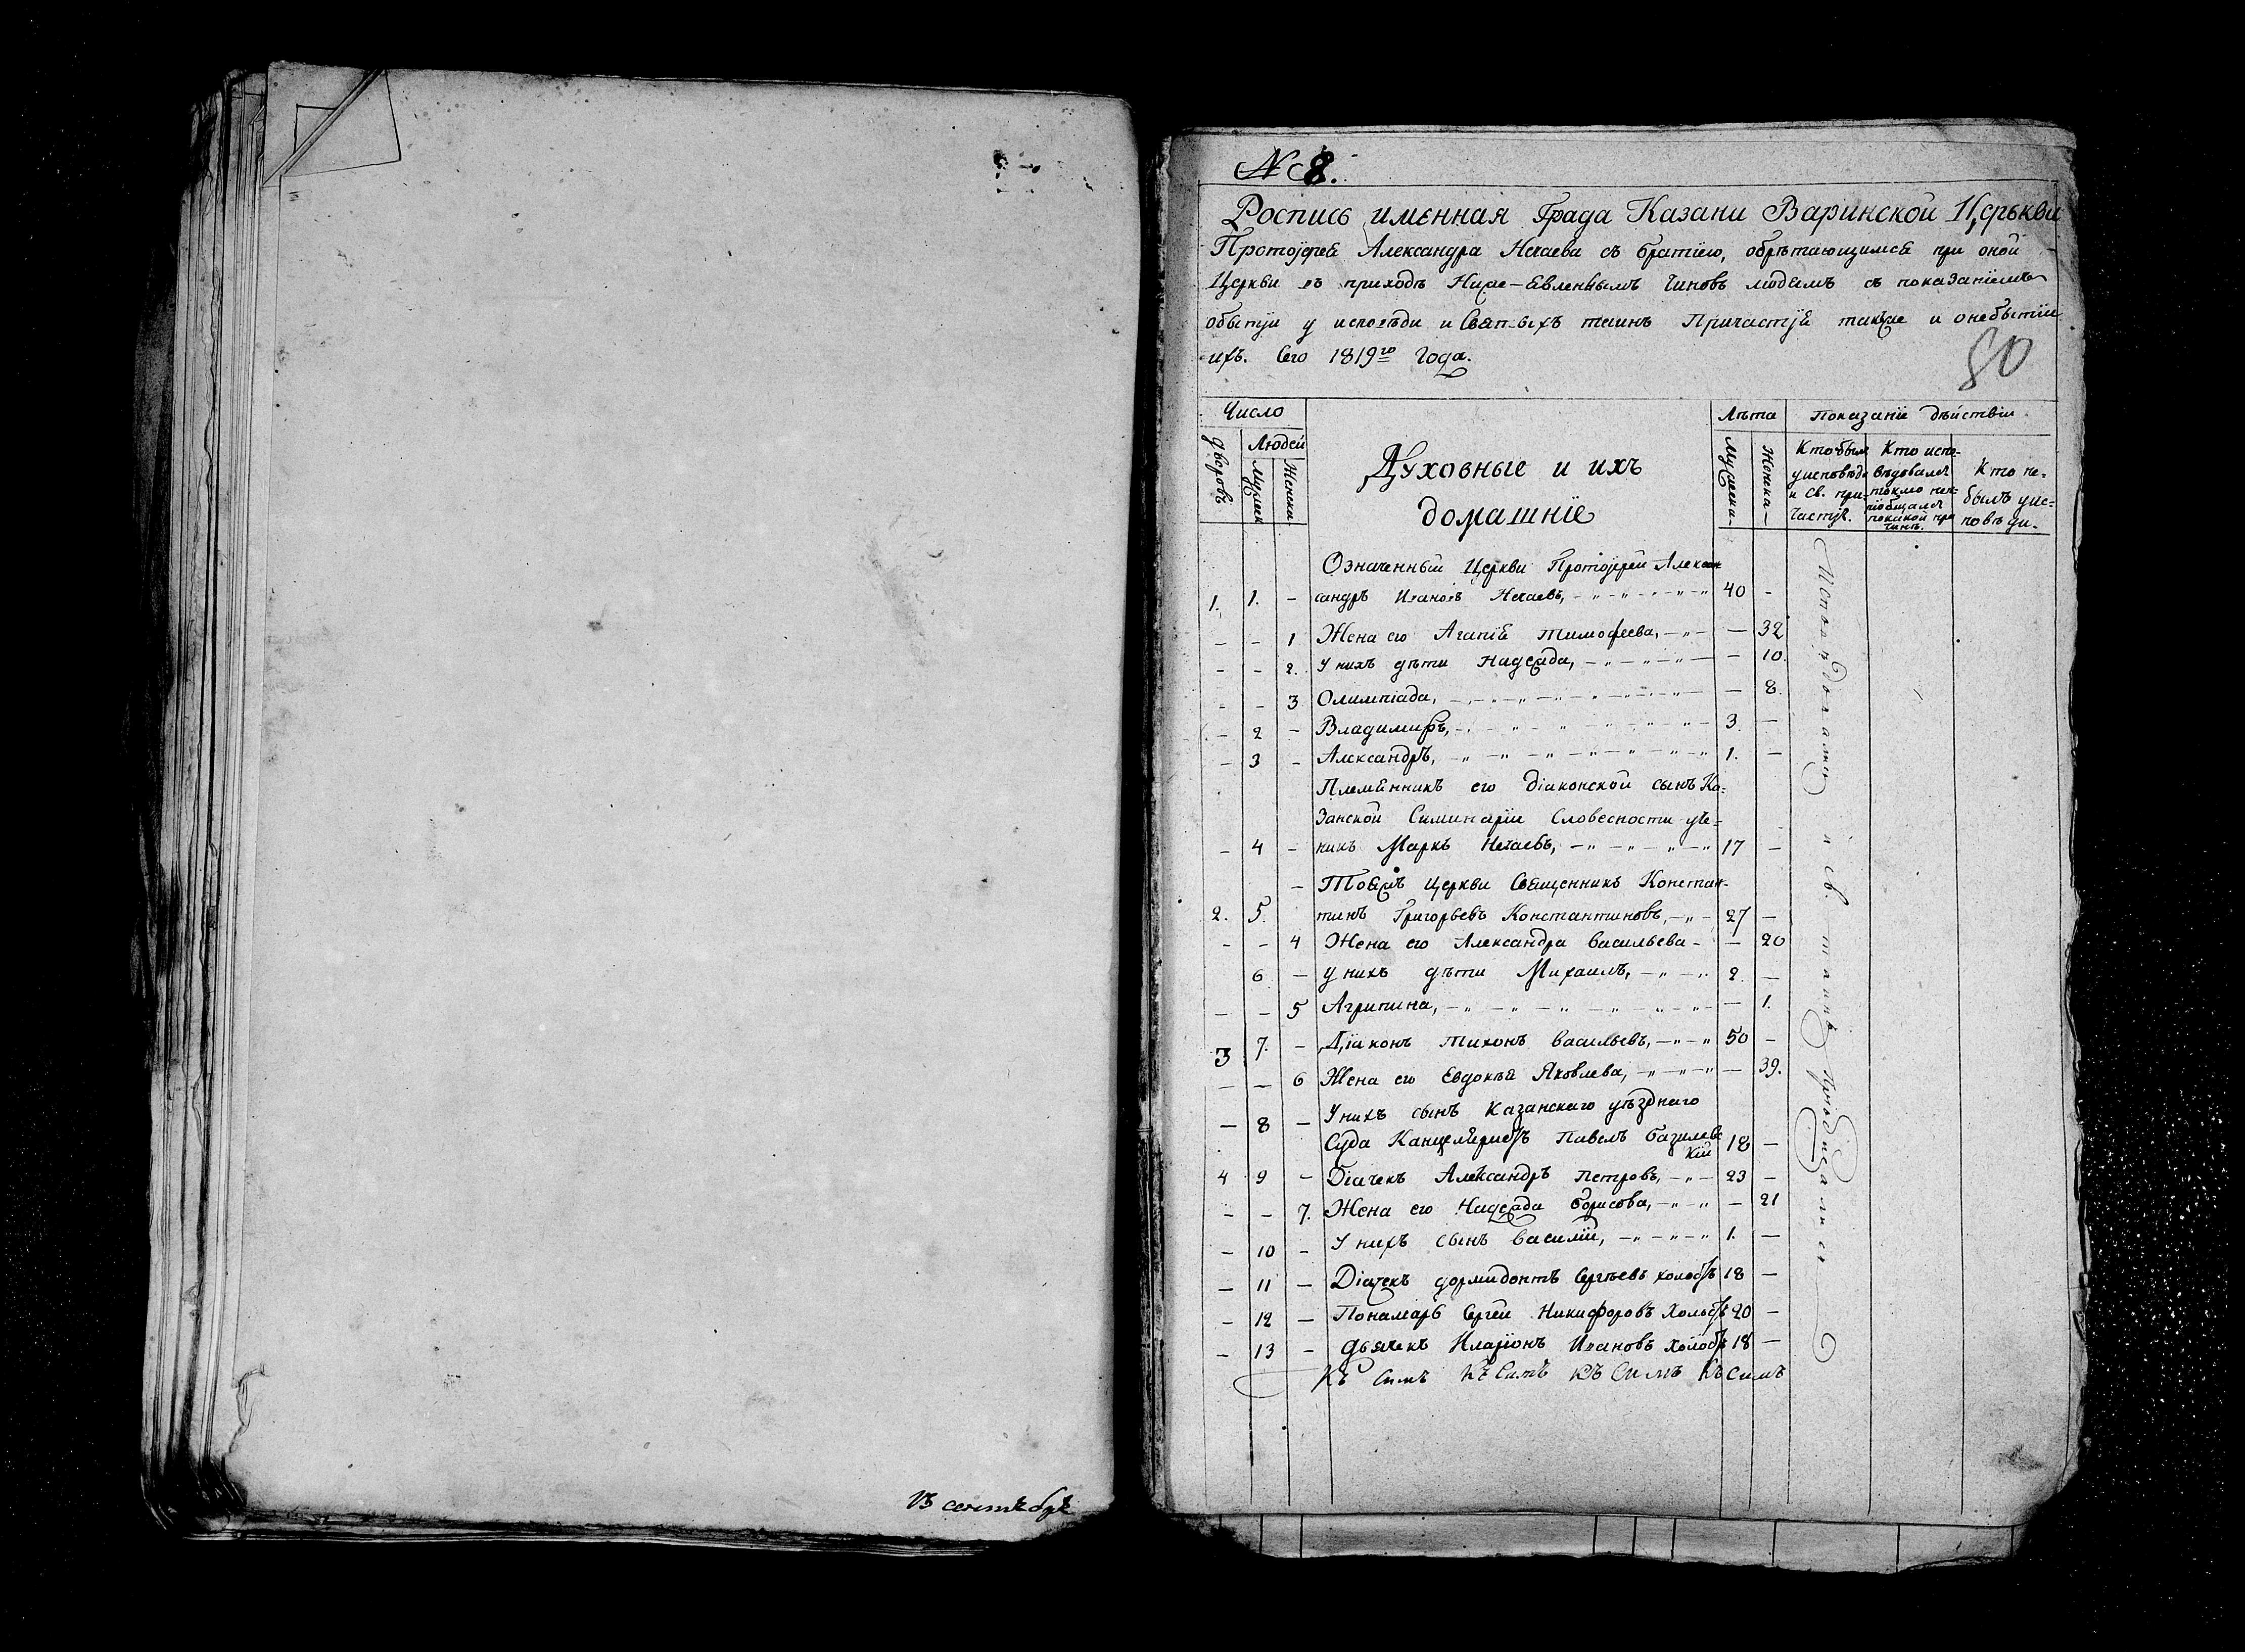 В сентябрѣ
№ 8.
Роспись имѣнная Града Казани Варинской Церькви
Протоіерея Александра Нечаева съ братіею, обрѣтающимся при оной
Церкви въ приходѣ Ниже-явленнымъ Чиновъ людямъ съ показаніемъ
обытіи у исповѣди и Святыхъ таинъ Причастія также и онебытіи
ихъ. Сего 1819го Года.
80
Число Лѣта Показаніе дѣйствіи
дворовъ Людей Мужеска Женска
Мужеск Женска
Духовные и ихъ
домашніе
Кто былъ у исповѣди и Св. причастія.
Кто исповѣдовался токмо непріобщался по какой причинѣ.
Кто не былъ у исповѣди.
Означенныи Церкви Протоіерей Алексан
1. 1. – сандръ Ивановъ Нечаевъ, 40 –
– – 1 Жена его Агапія Тимофеева, – 32
– – 2. У нихъ дѣти Надежда, – 10.
– – 3 Олимпіада, – 8.
– 2 – Владимиръ, 3. –
– 3 – Александръ, 1. –
Племянникъ его діаконской сынъ Ка=
занской Симинаріи Словесности уче=
– 4 – никъ Маркъ Нечаевъ, 17 –
– Тояжъ Церкви Священникъ Констан-
2. 5. тинъ Григорьевъ Константиновъ, 27 –
– – 4 Жена его Александра Васильева – – 20
6 – у нихъ дѣти Михаилъ, 2. –
– – 5 Агрипина, – 1.
3 7. – Діаконъ Тихонъ Васильевъ, 50 –
– – 6 Жена его Евдокѣя Яковлева, – 39.
– 8 – У нихъ сынъ Казанскаго уѣзднаго
Суда Канцеляристъ Павелъ Базилевскій 18 –
4 9 – Діачекъ Александръ Петровъ, 23 –
– – 7. Жена его Надежда Борисова, – 21
– 10 – У нихъ сынъ Василій, 1. –
– 11 – Діячекъ Дормидонтъ Сергѣевъ холостъ 18 –
– 12 – Понамарь Сергѣй Никифоровъ Холостъ 20 –
– 13 – Дьячекъ Иларіонъ Ивановъ холостъ 18 –
Къ Симъ Къ Симъ Къ Симъ Къ Симъ
Исповѣдовались и св. таинъ пріобщались